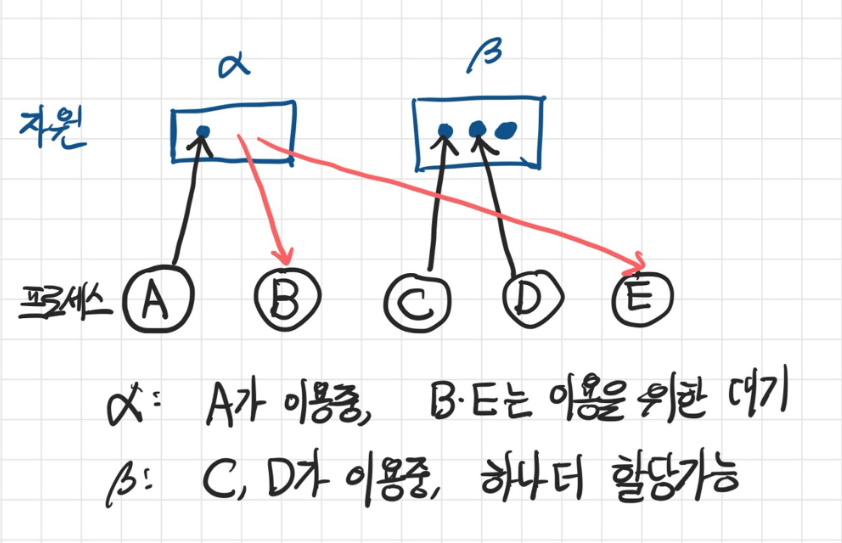 α β
자원
프로세스 A B C D E
α: A가 이용중, B·E는 이용을 위한 대기
β: C, D가 이용중, 하나더 할당가능